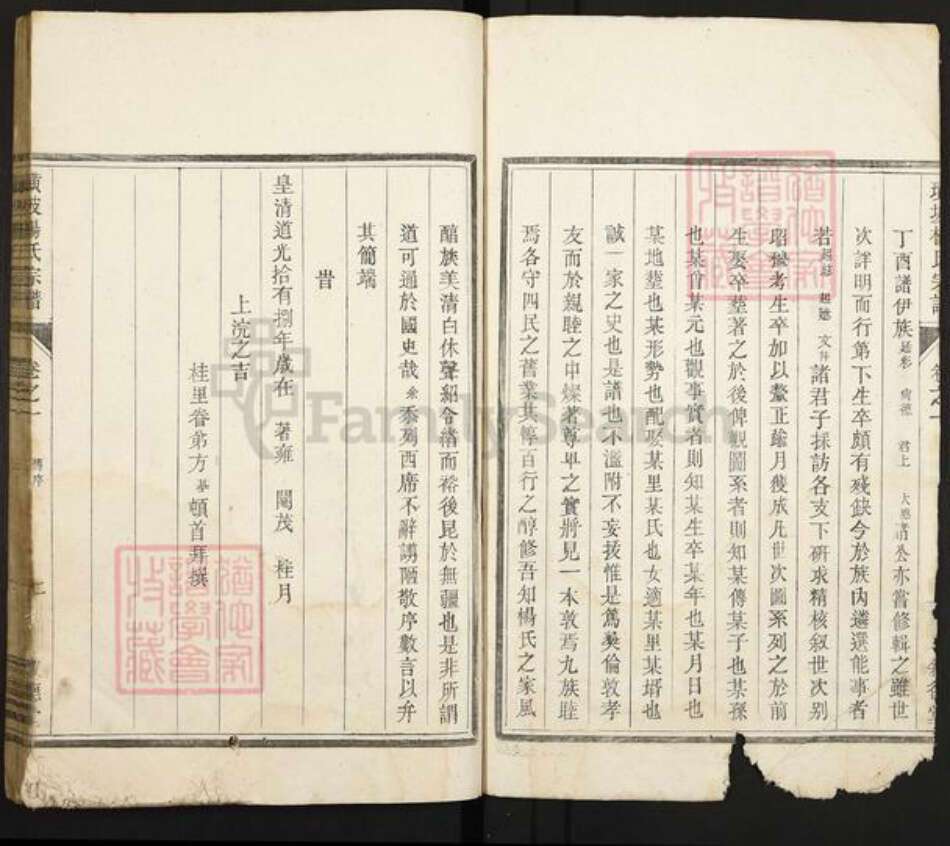 丁酉譜伊族廷彩 炳德 君上 大思清公亦嘗修輯之雖世
次詳明而行第下生卒頗有殘缺今於族內遴選能事者
若 文 諸君子採訪各支下研求精核叙世次别
昭穆考生卒加以釐正踰月獲成凡世次圖系列之於前
生娶卒塟著之於後俾觀圖系者則知某傳某子也某孫
也某曾某元也觀事實者則知某生卒某年也某月日也
某地塟也某形勢也配娶某里某氏也女適某里某壻也
誠一家之史也是譜也不濫附不妄援惟是篤彝倫敦孝
友而於親睦之中燦著尊卑之實將見一本敦焉九族睦
焉各守四民之舊業共惇百行之醇修吾知楊氏之家風
醅族美清白休聲紹令緒而裕後昆於無疆也是非所謂
道可通於國史哉余忝列西席不辭謭陋敬序數言以弁
其簡端
旹
皇清道光拾有捌年歲在 著雍 閹茂 桂月
上浣之吉
桂里眷弟方 頓首拜撰
黃陂楊氏宗譜 卷之一
FamilySearch